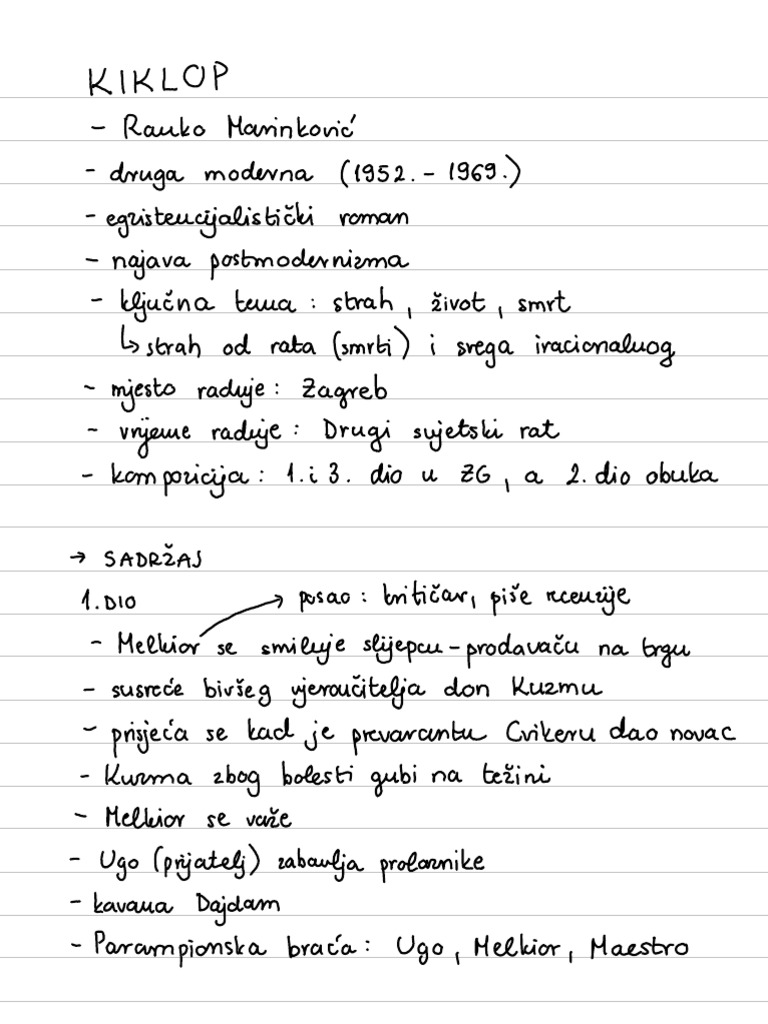 KIKLOP
- Ranko Marinković
- druga moderna (1952. - 1969.)
- egzistencijalistički roman
- najava postmodernizma
- ključna tema : strah , život , smrt
↳ strah od rata (smrti) i svega iracionalnog
- mjesto radnje : Zagreb
- vrijeme radnje : Drugi svjetski rat
- kompozicija : 1. i 3. dio u ZG , a 2. dio obuka
→ SADRŽAJ
1. DIO → posao : kritičar, piše recenzije
- Melkior se smiluje slijepcu - prodavaču na trgu
- susreće bivšeg vjeroučitelja don Kuzmu
- prisjeća se kad je prevarantu Cvikeru dao novac
- Kuzma zbog bolesti gubi na težini
- Melkior se važe
- Ugo (prijatelj) zabavlja prolaznike
- kavana Dajdam
- Parampionska braća : Ugo , Melkior , Maestro